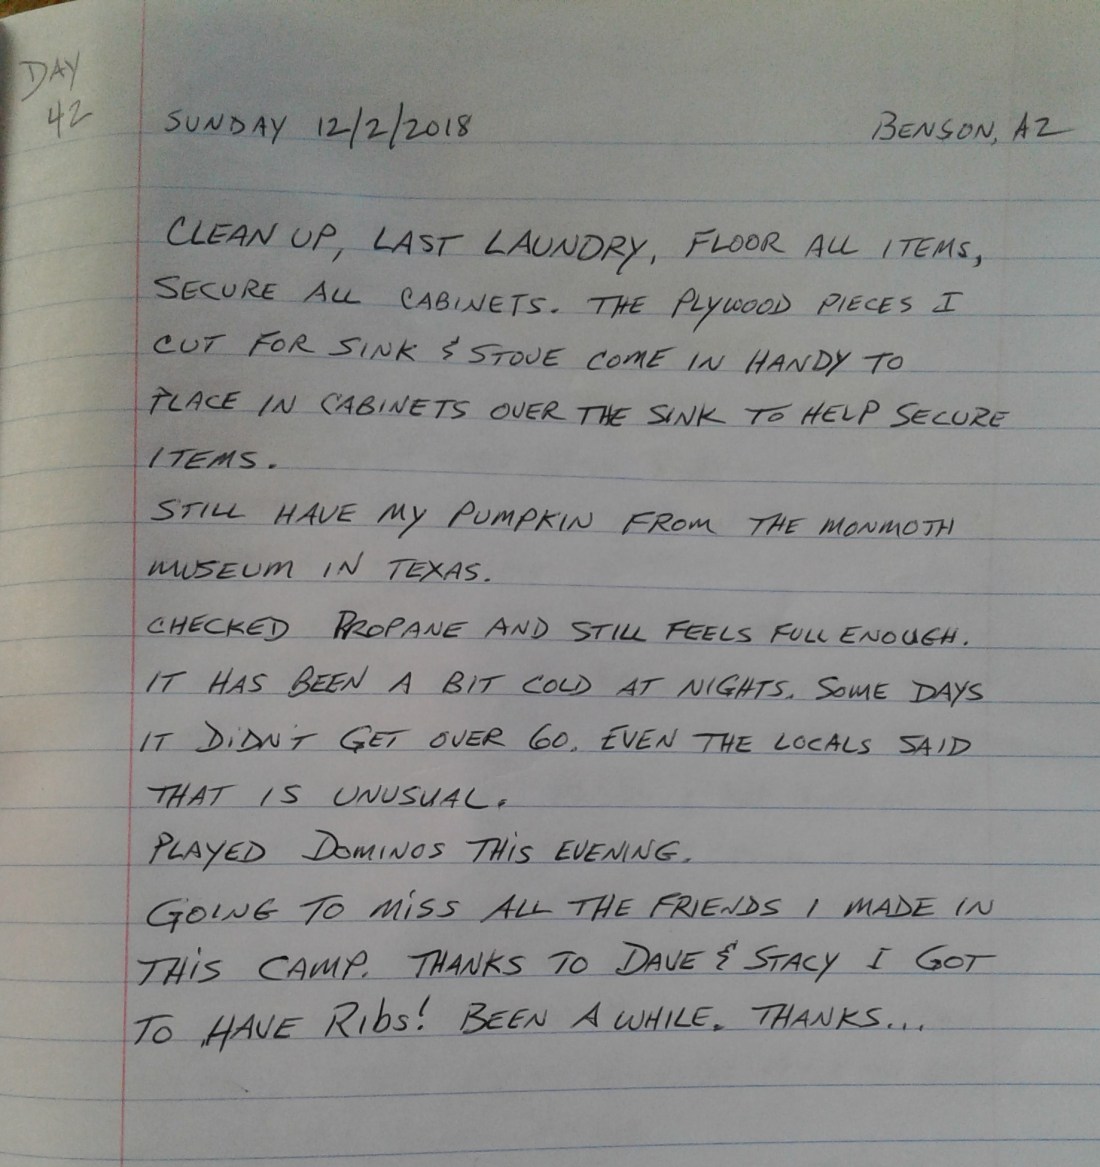 DAY
42
SUNDAY 12/2/2018 BENSON, AZ
CLEAN UP, LAST LAUNDRY, FLOOR ALL ITEMS,
SECURE ALL CABINETS. THE PLYWOOD PIECES I
CUT FOR SINK & STOVE COME IN HANDY TO
PLACE IN CABINETS OVER THE SINK TO HELP SECURE
ITEMS.
STILL HAVE MY PUMPKIN FROM THE MONMOTH
MUSEUM IN TEXAS.
CHECKED PROPANE AND STILL FEELS FULL ENOUGH.
IT HAS BEEN A BIT COLD AT NIGHTS. SOME DAYS
IT DIDN'T GET OVER 60. EVEN THE LOCALS SAID
THAT IS UNUSUAL.
PLAYED DOMINOS THIS EVENING.
GOING TO MISS ALL THE FRIENDS I MADE IN
THIS CAMP. THANKS TO DAVE & STACY I GOT
TO HAVE RIbS! BEEN A WHILE. THANKS...